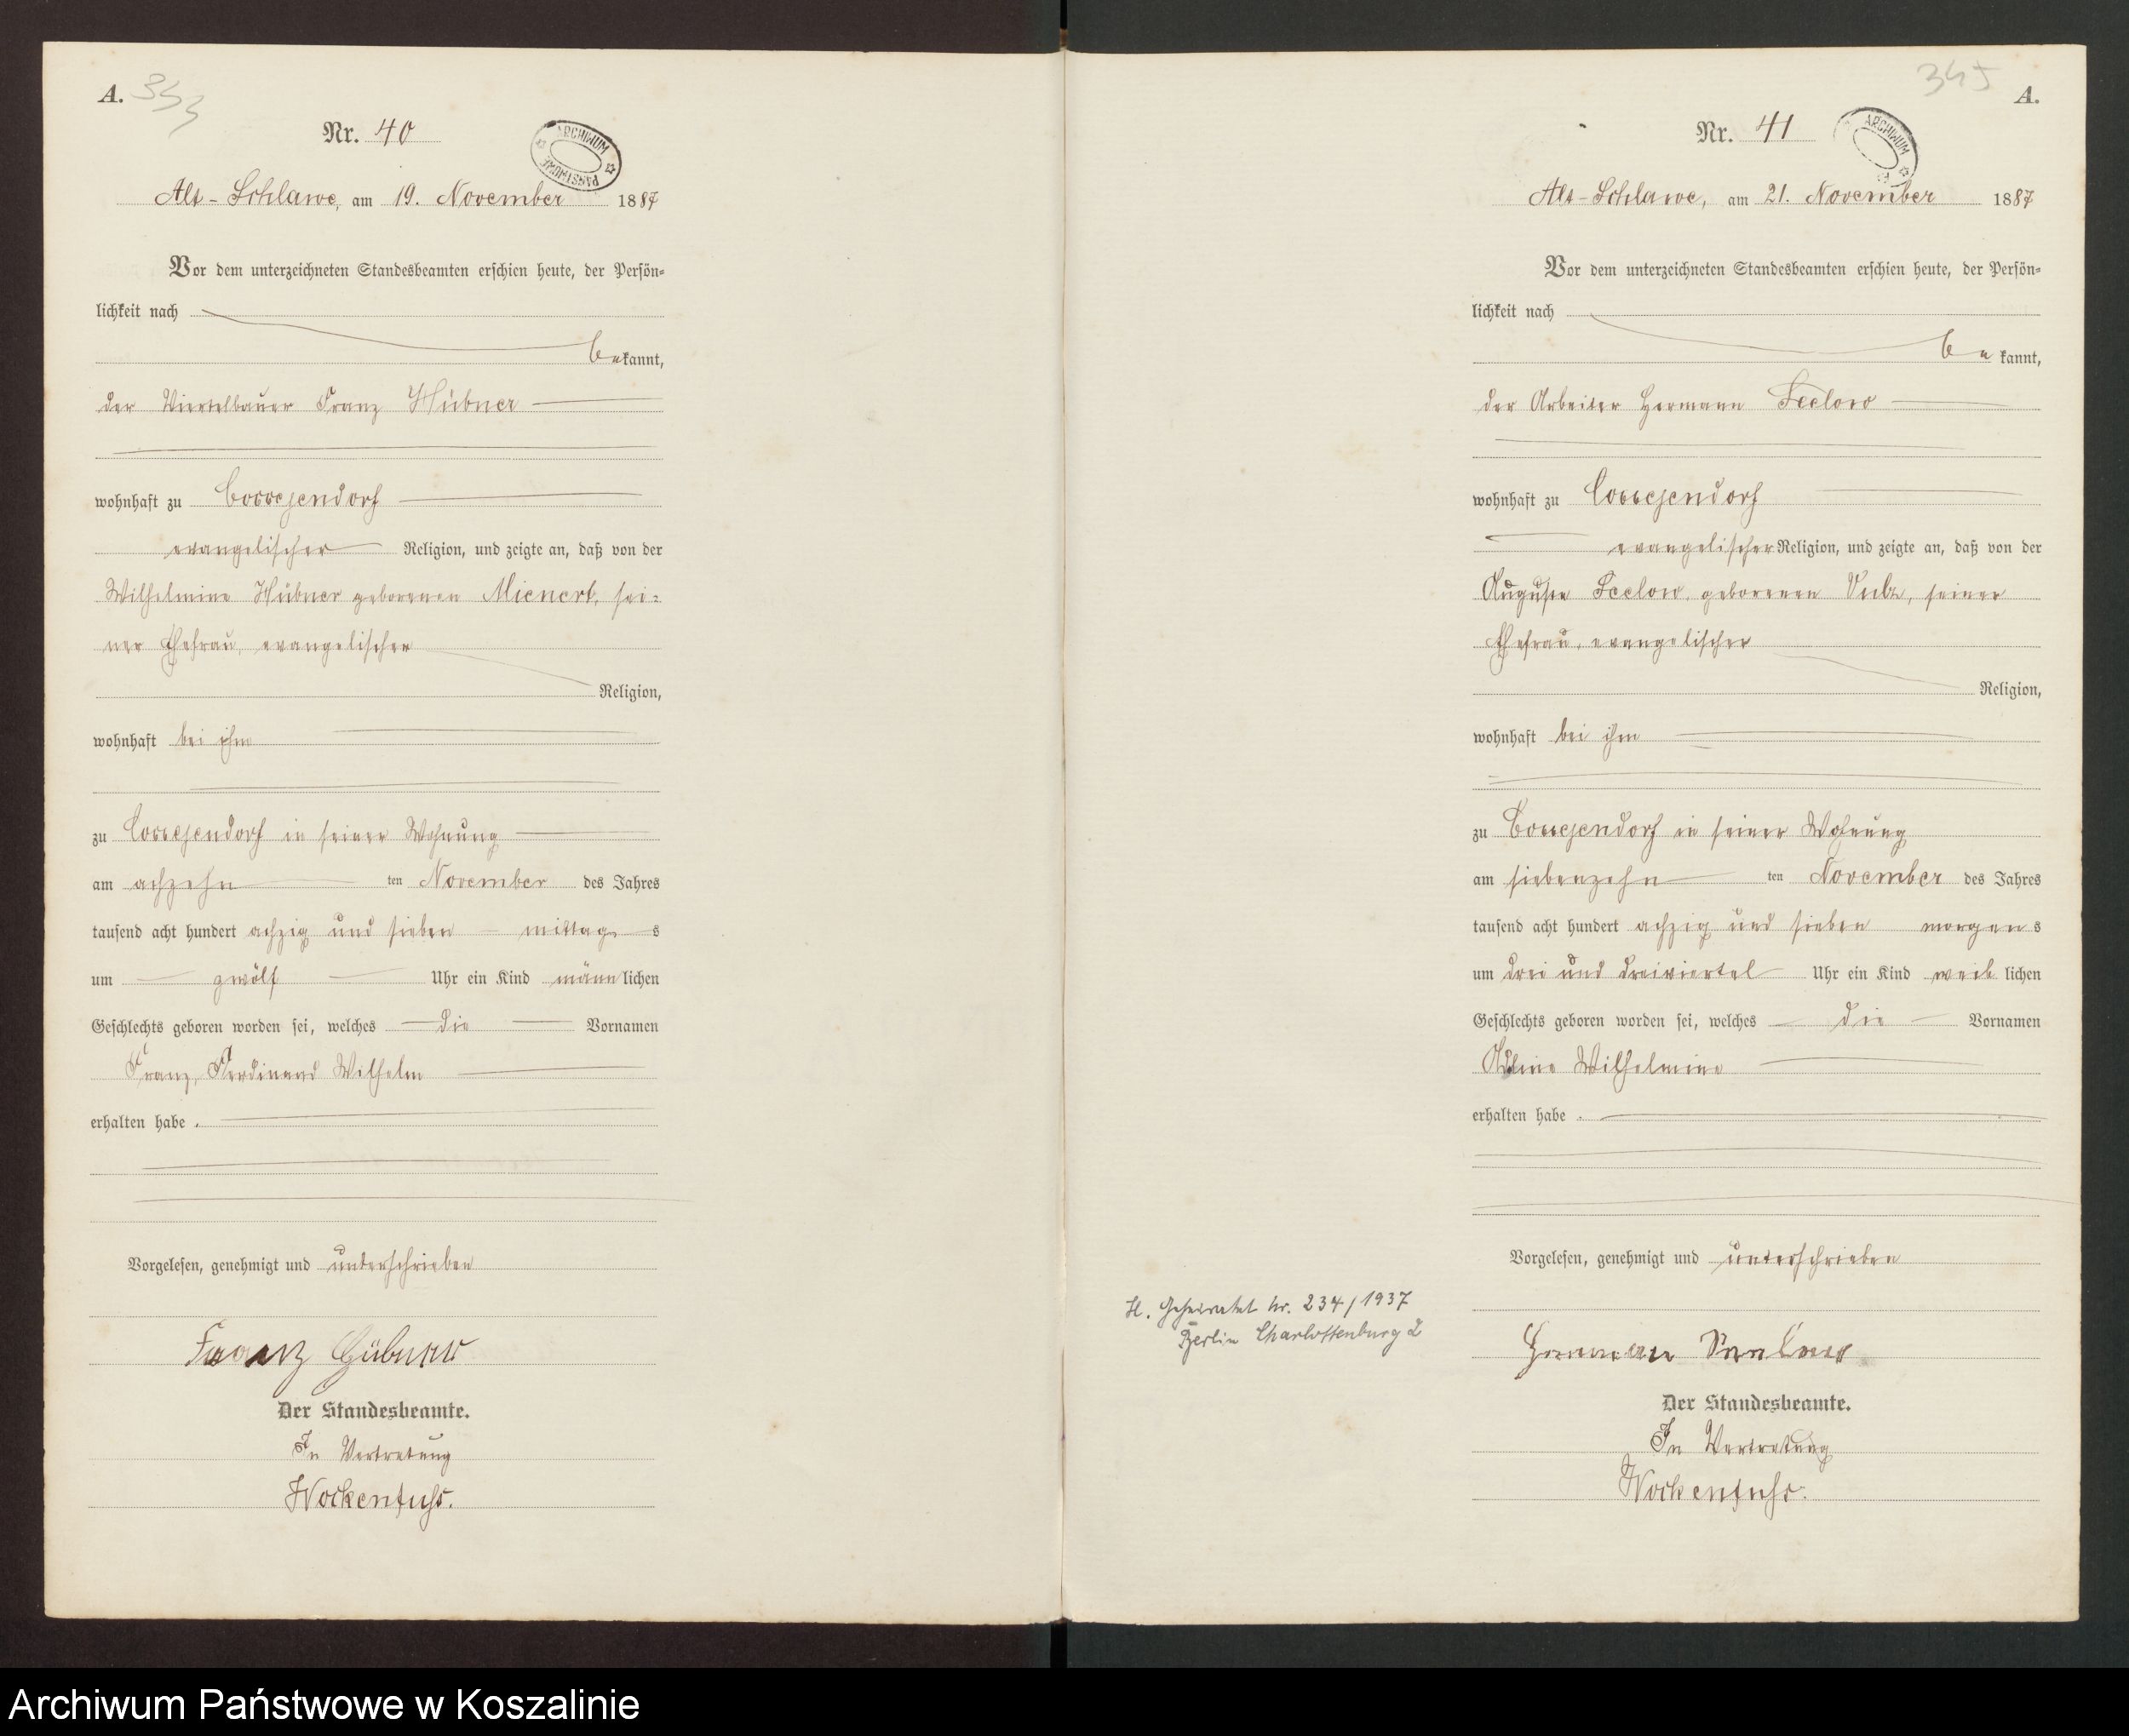 A.
Nr. 40
ARCHIWUM PAŃSTWOWE
Alt-Schlawe, am 19. November 1887
Vor dem unterzeichneten Standesbeamten erschien heute, der Persön-
lichkeit nach
bekannt,
der Viertelbauer Franz Hübner
wohnhaft zu Coccejendorf
evangelischer Religion, und zeigte an, daß von der
Wilhelmine Hübner geborenen Mienert, sei-
ner Ehefrau, evangelischer
Religion,
wohnhaft bei ihm
zu Coccejendorf in seiner Wohnung
am achzehn ten November des Jahres
tausend acht hundert achzig und sieben mittags
um zwölf Uhr ein Kind männlichen
Geschlechts geboren worden sei, welches die Vornamen
Franz, Ferdinand Wilhelm
erhalten habe.
Vorgelesen, genehmigt und unterschrieben
Franz Hübner
Der Standesbeamte.
In Vertretung
Wockenfuhs.
345
A.
Nr. 41
ARCHIWUM
Alt-Schlawe, am 21. November 1887
Vor dem unterzeichneten Standesbeamten erschien heute, der Persön-
lichkeit nach
bekannt,
der Arbeiter Hermann Seelow
wohnhaft zu Coccejendorf
evangelischer Religion, und zeigte an, daß von der
Auguste Seelow, geborenen, seiner
Ehefrau, evangelischer
Religion,
wohnhaft bei ihm
zu Coccejendorf in seiner Wohnung
am siebenzehn ten November des Jahres
tausend acht hundert achzig und sieben morgens
um drei und dreiviertel Uhr ein Kind weiblichen
Geschlechts geboren worden sei, welches die Vornamen
Wilhelmine
erhalten habe.
Vorgelesen, genehmigt und unterschrieben
H. Geheiratet Nr. 234/1937
Berlin Charlottenburg 2
Hermann Seelow
Der Standesbeamte.
In Vertretung
Wockenfuhs.
Archiwum Państwowe w Koszalinie